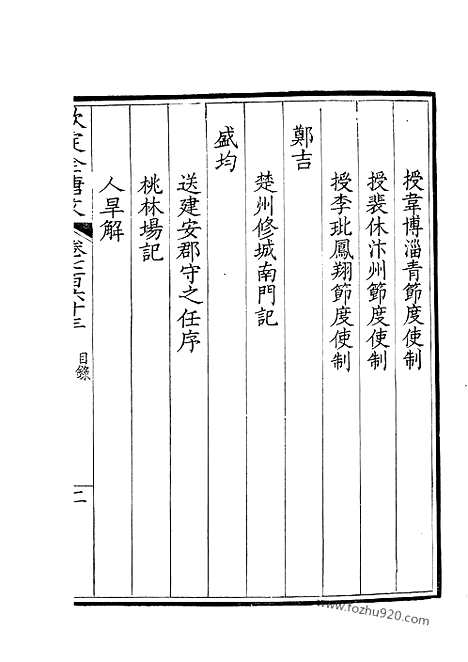 授韋博淄青節度使制
授裴休汴州節度使制
授李玭鳳翔節度使制
鄭吉
楚州修城南門記
盛均
送建安郡守之任序
桃林場記
人旱解
欽定全唐文
卷七百六十三
目錄
二
www.fozhu920.com